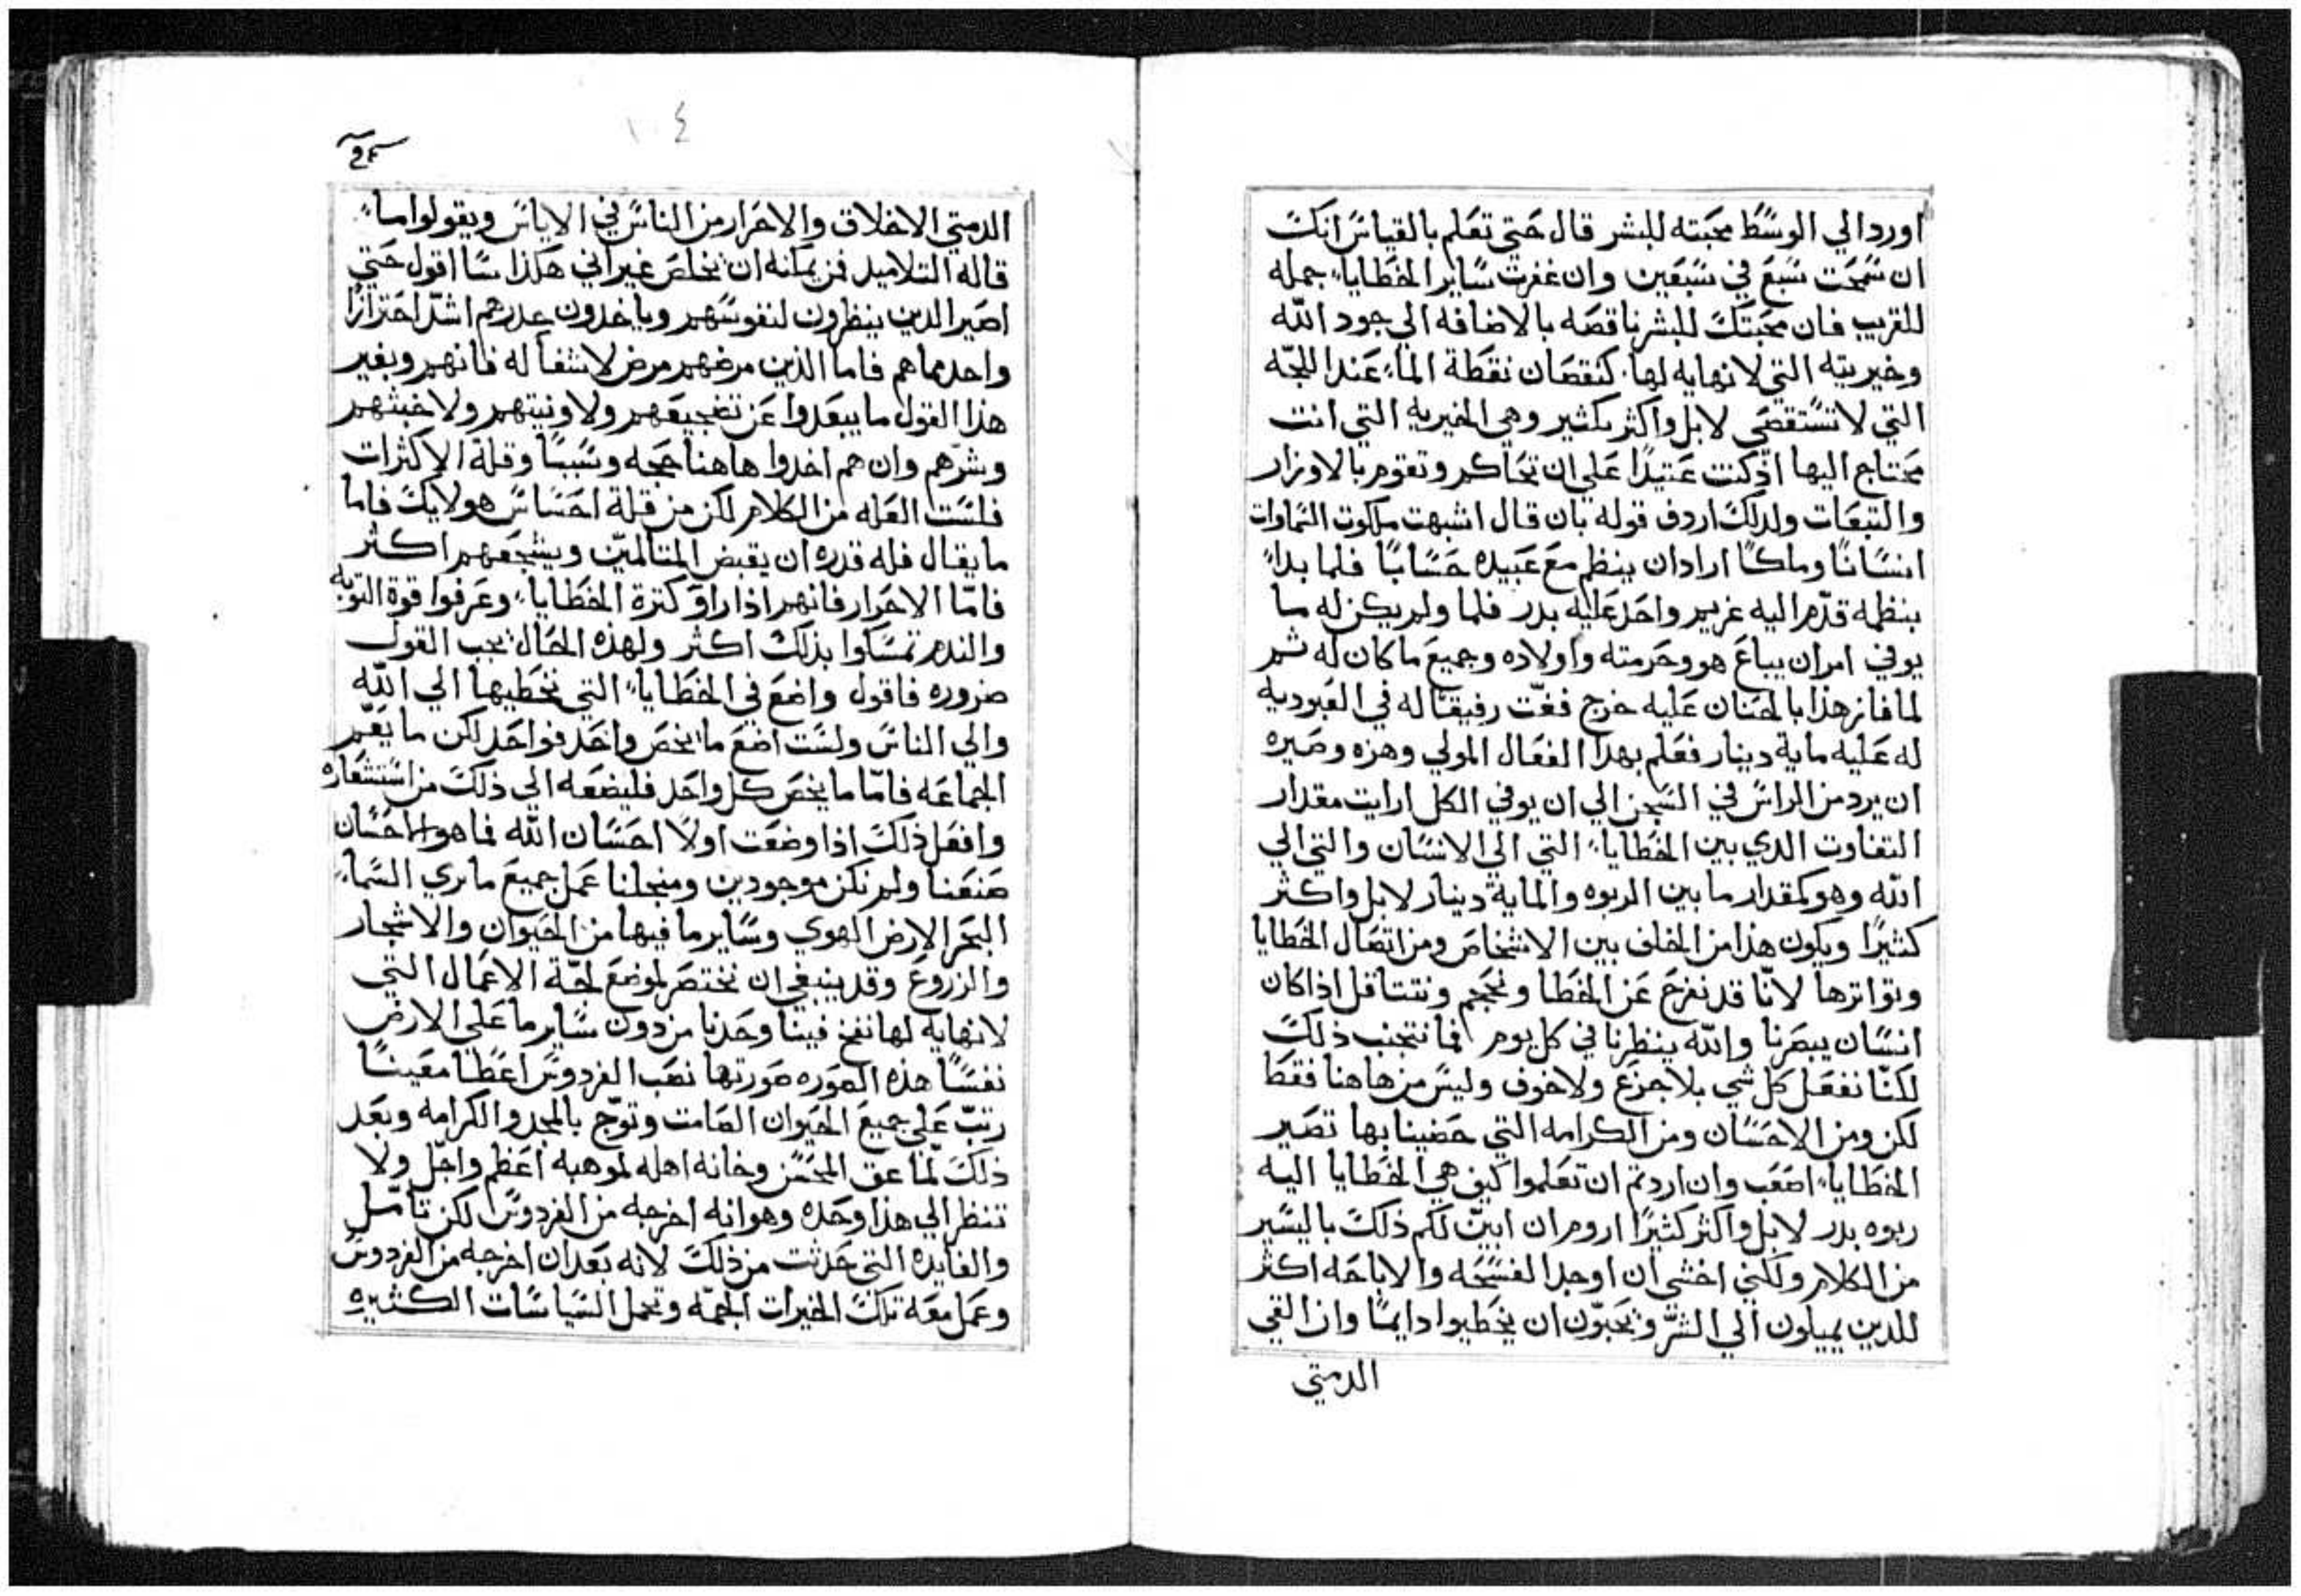 اورد الي الوسط محبته للبشر قال حتي تعلم بالقياس انك
ان سمحت سبع في سبعين وان غفرت ساير الخطايا جمله
للقريب فان محبتك للبشر ناقصه بالاضافه الي جود الله
وخيريته التي لا نهايه لها كنقصان نقطة الماء عند اللجّه
التي لا تستقصي لا بل واكثر بكثير وهي الخيريه التي انت
محتاج اليها اذ كنت عتيدًا علي ان تحاكم وتقوم بالاوزار
والتبعات ولدلك اردف قوله بان قال اشبهت ملكوت السماوات
انسانًا وملكًا اراد ان ينظم مع عبيده حسابًا فلما بدا
بنظمه قدّم اليه غريم واحد عليه بدر فلما ولم يكن له ما
يوفي امر ان يباع هو وحرمته واولاده وجميع ما كان له ثم
لما فاز هذا بالحنان عليه خرج فغتّ رفيقًا له في العبوديه
له عليه ماية دينار فعلم بهدا الفعال المولي وهزه وصيره
ان يرد من الراس في السجن الي ان يوفي الكل ارايت مقدار
التفاوت الدي بين الخطايا التي الي الانسان والتي الي
الله وهو كمقدار ما بين الربوه والماية دينار لا بل واكثر
كثيرًا ويكون هذا من الخلف بين الاشخاص ومن اتصال الخطايا
وتواترها لانّا قد نفزع عن الخطا ونحجم ونتتاقل اذا كان
انسان يبصرنا والله ينظرنا في كل يوم فما نتجنب ذلك
لكنّا نفعل كل شي بلا جزع ولا خوف وليس من هاهنا فقط
لكن ومن الاحسان ومن الكرامه التي حضينا بها تصير
الخطايا اصعب وان اردتم ان تعلموا كيف هي الخطايا اليه
ربوه بدر لا بل واكثر كثيرًا اروم ان ابيّن لكم ذلك باليسير
من الكلام ولكني اخشي ان اوجد الفسحه والاباحه اكثر
للدين يميلون الي الشرّ ويحبّون ان يخطيوا دايمًا وان القي
الدمتي
١٠٤
الدمتي الاخلاق والاحرار من الناس في الاياس ويقولوا ما
قاله التلاميد فمن يمكنه ان يخلص غير اني هكذا سا اقول حتي
اصير الدين ينظرون لنفوسهم وياخدون حدرهم اشدّ احترازًا
واحدهما هم فاما الذين مرضهم مرض لا شفا له فانهم وبغير
هذا القول ما يبعدوا عن تضجيعهم ولا ونيتهم ولا خبثهم
وشرّهم وان هم اخدوا هاهنا حجه وسببًا وقلة الاكثرات
فلست العله من الكلام لكن من قلة احساس هولايك فاما
ما يقال فله قدره ان يقبض المتالميّن ويشجعهم اكثر
فامّا الاحرار فانهم اذا راو كترة الخطايا وعرفوا قوة التوبه
والندم تمسكوا بذلك اكثر ولهذه الحال يجب القول
ضروره فاقول واضع في الخطايا التي نخطيها الي الله
والي الناس ولست اضع ما يخص واحد فواحد لكن ما يعمّ
الجماعه فامّا ما يخص كل واحد فليضعه الي ذلك من استشعاره
وافعل ذلك اذا وضعت اولًا احسان الله فما هو احسان
صنعنا ولم نكن موجودين ومنجلنا عمل جميع ما يري السماء
البحر الارض الهوي وساير ما فيها من الحيوان والاشجار
والزروع وقد ينبغي ان نختصر لموضع لجّة الاعمال التي
لا نهايه لها نفخ فينا وحدنا من دون ساير ما علي الارض
نفسًا هذه الصوره صورتها نصب الفردوس اعطا معينًا
رتبّ علي جميع الحيوان الصامت وتوّج بالمجد والكرامه وبعد
ذلك لمّا عق المحسن وخانه اهله لموهبه اعظم واجلّ ولا
تنظر الي هذا وحده وهو انه اخرجه من الفردوس لكن تامّل
والفايده التي حدثت من ذلك لانه بعد ان اخرجه من الفردوس
وعمل معه تلك الخيرات الجمّه وتحمل السياسات الكثيره